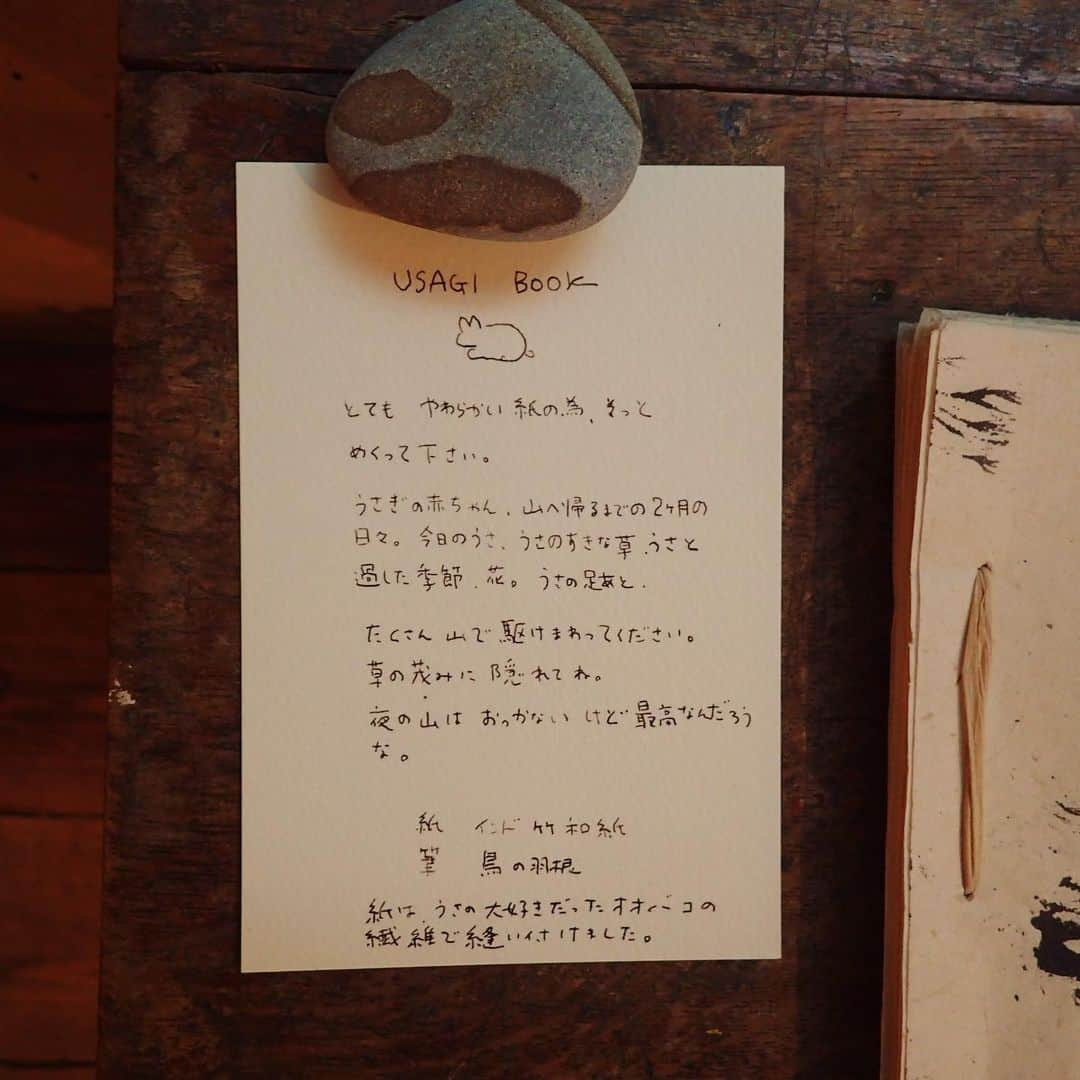 USAGI BOOK
とても やわらかい 紙の為、そっと
めくって下さい。
うさぎの赤ちゃん、山へ帰るまでの2ヶ月の
日々。今日のうさ、うさのすきな草、うさと
過した季節、花。うさの足あと、
たくさん山で駆けまわってください。
草の茂みに隠れてね。
夜の山は おっかない けど 最高なんだろう
な。
紙 インド 竹 和紙
筆 鳥の羽根
紙は、うさの大好きだったオオバコの
繊維で縫い付けました。